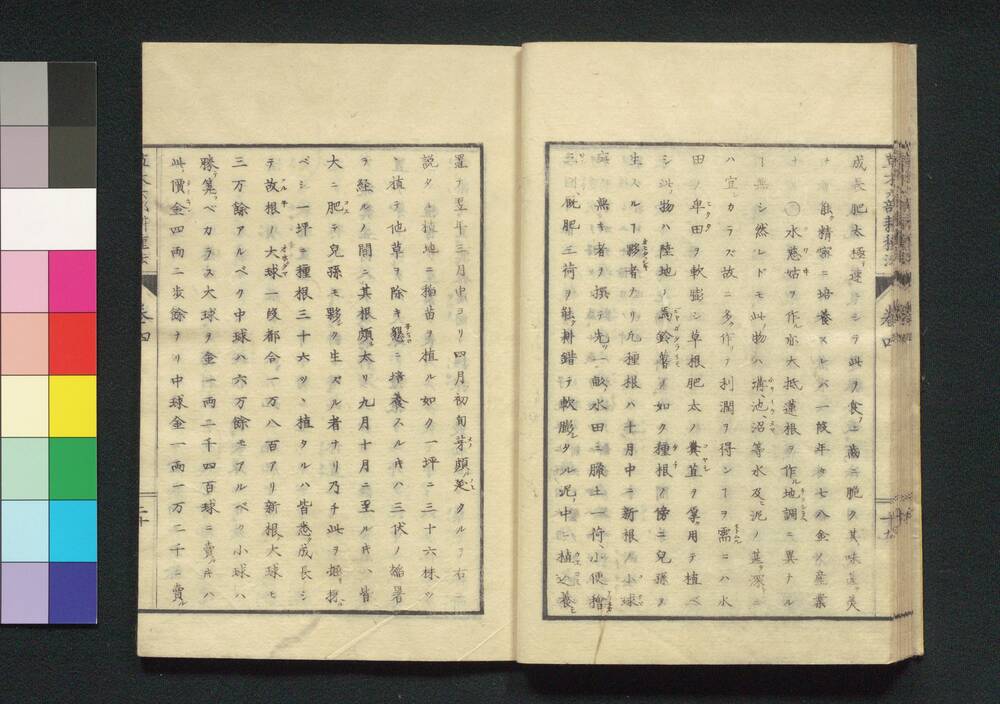 成長肥太極速シラ此ヲ食フニ歳ニ脆ク其味美
能ク精密ニ培養スレバ一段年々七八金ノ産業
ナ○水慈姑ヲ作ル亦大抵蓮根ヲ作ル地調ニ異ナル
無シ然レドモ此物ハ溝、池、沼等水及ビ泥ノ甚深ニ
ハ宜シカラズ故ニ多ク作リテ利潤ヲ得ンヲ需ムニハ水
田ノ卑田ヲ軟膨シ草根肥太ノ糞苴ヲ用テ植ベ
シ此物ハ陸地ノ馬鈴薯ノ如ク種根ノ傍ニ兒孫ヲ
生スルヿ夥者ナリ凡種根ハ十月中ニ新根ノ小球
無キ者ヲ撰テ先ヅ一畝水田ニ臘土一荷小便
肥三荷ヲ耕錯テ軟膨タル泥中ニ植込養
置テ翌年三月中ヨリ四月初旬芽顕出クルヲ右ニ
説タル植地ニ稲苗ヲ植ル如ク一坪ニ三十六株ヅ
植テ他草ヲ除キ懇ニ培養スルキハ三伏ノ焔暑
ヲ経ルノ間ニ其根頗太リ九月十月ニ至ルキハ皆
大ニ肥テ兒孫モ夥ク生ズル者ナリ乃チ此ヲ堀採
ベシ一坪ニ種根三十六ツヽ植タルハ皆悉ク成長シ
テ故根ノ大球一段都合一万八百アリ新根大球モ
三万餘アルベク中球ハ六万餘モアルベク小球ハ
勝テ算ベカラス大球ヲ金一両ニ千四百球ニ賣キハ
此價金四両二歩餘ナリ中球金一両一万二千ニ賣